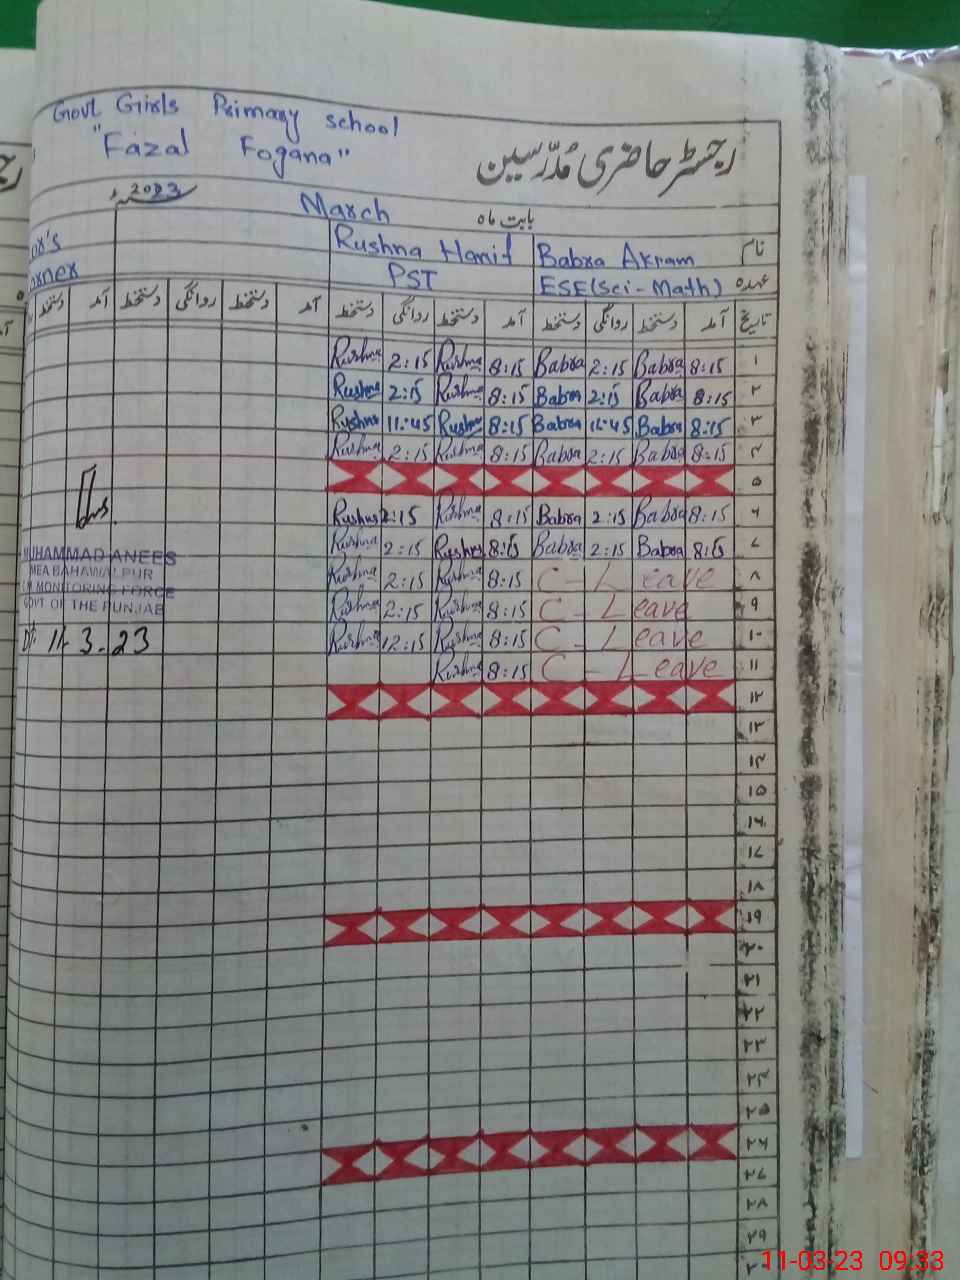 Govt Girls Primary school
"Fazal Fogana"
رجسٹر حاضری مُدرّسین
2023
March بابت ماہ
Rushna Hanif Babra Akram نام
PST ESE(Sci-Math) عہدہ
دستخط آمد دستخط روانگی دستخط آمد دستخط روانگی دستخط آمد دستخط روانگی دستخط آمد تاریخ
Rushna 2:15 Rushna 8:15 Babra 2:15 Babra 8:15 ۱
Rushna 2:15 Rushna 8:15 Babra 2:15 Babra 8:15 ۲
Rushna 11:45 Rushna 8:15 Babra 11:45 Babra 8:15 ۳
Rushna 2:15 Rushna 8:15 Babra 2:15 Babra 8:15 ۴
۵
Rushna 2:15 Rushna 8:15 Babra 2:15 Babra 8:15 ۶
Rushna 2:15 Rushna 8:15 Babra 2:15 Babra 8:15 ۷
Rushna 2:15 Rushna 8:15 C - Leave ۸
Rushna 2:15 Rushna 8:15 C - Leave ۹
Rushna 12:15 Rushna 8:15 C - Leave ۱۰
Rushna 8:15 C - Leave ۱۱
MUHAMMAD ANEES
MEA BAHAWALPUR
MONITORING FORCE
GOVT OF THE PUNJAB
Dt: 11-3-23
۱۲
۱۳
۱۴
۱۵
۱۶
۱۷
۱۸
۱۹
۲۰
۲۱
۲۲
۲۳
۲۴
۲۵
۲۶
۲۷
۲۸
۲۹
11-03-23 09:33